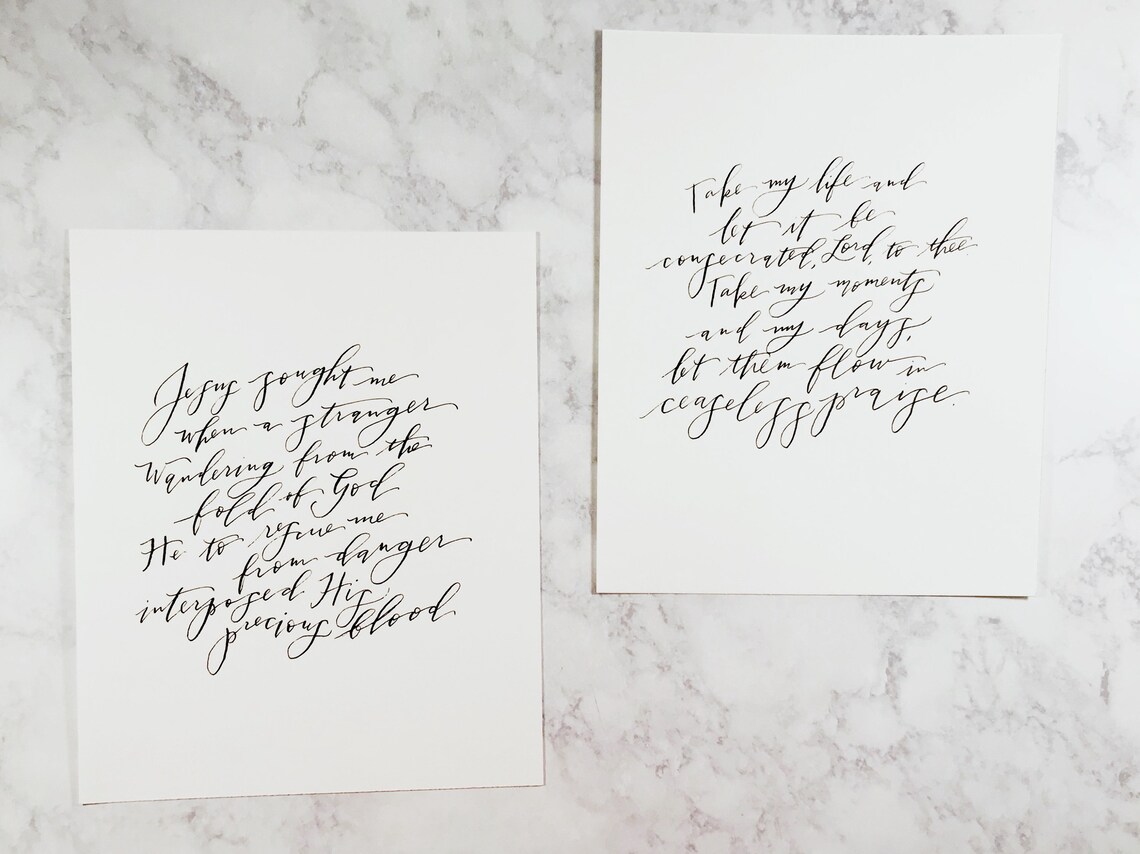 Jesus sought me
when a stranger
Wandering from the
fold of God
He to rescue me
from danger
interposed His
precious blood
Take my life and
let it be
consecrated, Lord, to thee.
Take my moments
and my days,
let them flow in
ceaseless praise.